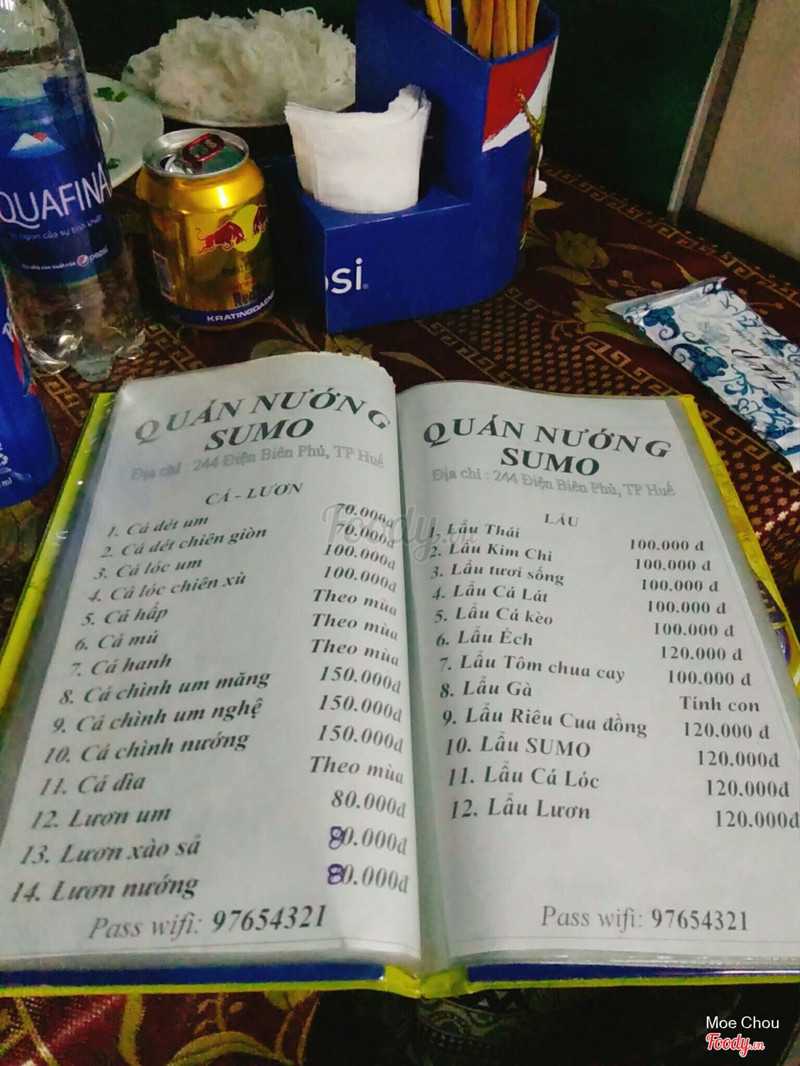 QUAFINA
PEPSI
Red
KRATINGDAENG
psi
QUÁN NƯỚNG
SUMO
Địa chỉ : 244 Điện Biên Phủ, TP Huế
CÁ - LƯƠN
1. Cá dét um 70.000đ
2. Cá dét chiên giòn 70.000đ
3. Cá lóc um 100.000đ
4. Cá lóc chiên xù 100.000đ
5. Cá hấp Theo mùa
6. Cá mú Theo mùa
7. Cá hanh Theo mùa
8. Cá chình um măng 150.000đ
9. Cá chình um nghệ 150.000đ
10. Cá chình nướng 150.000đ
11. Cá dìa Theo mùa
12. Lươn um 80.000đ
13. Lươn xào sả 80.000đ
14. Lươn nướng 80.000đ
Pass wifi: 97654321
QUÁN NƯỚNG
SUMO
Địa chỉ : 244 Điện Biên Phủ, TP Huế
LẨU
1. Lẩu Thái 100.000 đ
2. Lẩu Kim Chi 100.000 đ
3. Lẩu tươi sống 100.000 đ
4. Lẩu Cá Lát 100.000 đ
5. Lẩu Cá kèo 100.000 đ
6. Lẩu Ếch 120.000 đ
7. Lẩu Tôm chua cay 100.000 đ
8. Lẩu Gà Tính con
9. Lẩu Riêu Cua đồng 120.000 đ
10. Lẩu SUMO 120.000đ
11. Lẩu Cá Lóc 120.000đ
12. Lẩu Lươn 120.000đ
Pass wifi: 97654321
Foody.vn
Moe Chou
Foody.vn